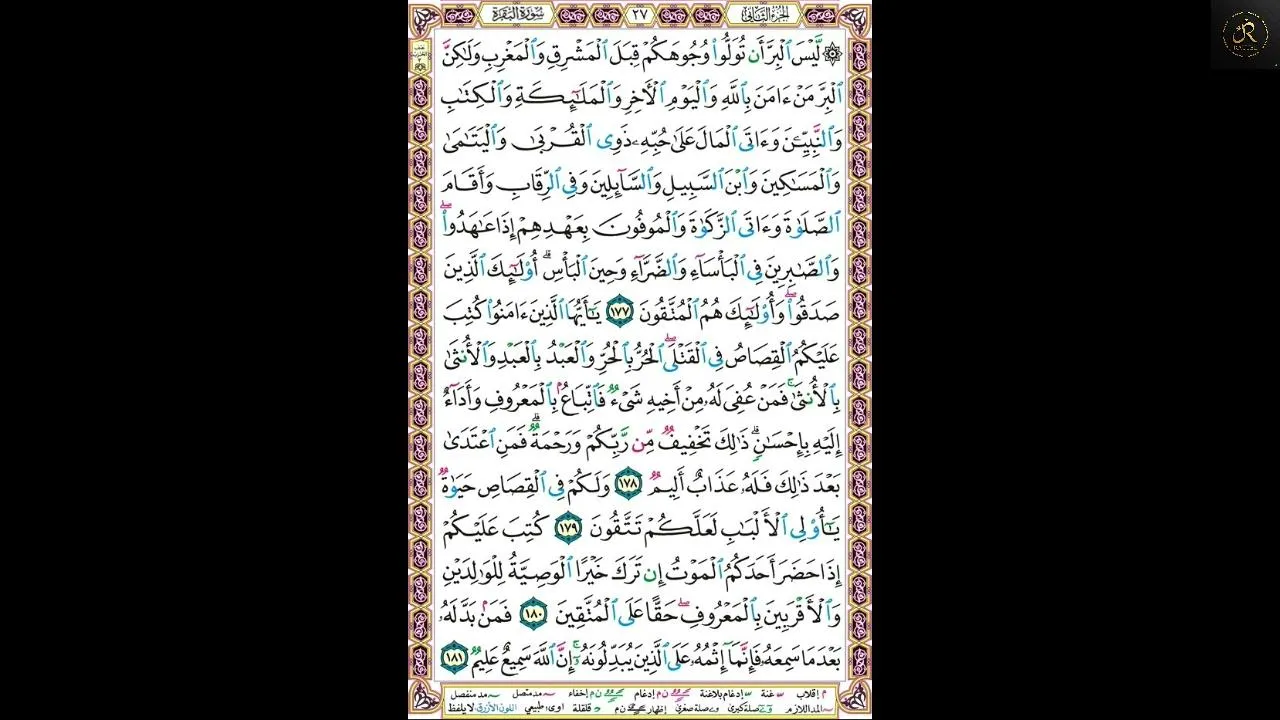 الجزء الثاني ٢٧ سورة البقرة
۞ لَّيْسَ ٱلْبِرَّ أَن تُوَلُّوا۟ وُجُوهَكُمْ قِبَلَ ٱلْمَشْرِقِ وَٱلْمَغْرِبِ وَلَـٰكِنَّ
ٱلْبِرَّ مَنْ ءَامَنَ بِٱللَّهِ وَٱلْيَوْمِ ٱلْـَٔاخِرِ وَٱلْمَلَـٰٓئِكَةِ وَٱلْكِتَـٰبِ
وَٱلنَّبِيِّـۧنَ وَءَاتَى ٱلْمَالَ عَلَىٰ حُبِّهِۦ ذَوِى ٱلْقُرْبَىٰ وَٱلْيَتَـٰمَىٰ
وَٱلْمَسَـٰكِينَ وَٱبْنَ ٱلسَّبِيلِ وَٱلسَّآئِلِينَ وَفِى ٱلرِّقَابِ وَأَقَامَ
ٱلصَّلَوٰةَ وَءَاتَى ٱلزَّكَوٰةَ وَٱلْمُوفُونَ بِعَهْدِهِمْ إِذَا عَـٰهَدُوا۟ ۖ
وَٱلصَّـٰبِرِينَ فِى ٱلْبَأْسَآءِ وَٱلضَّرَّآءِ وَحِينَ ٱلْبَأْسِ ۗ أُو۟لَـٰٓئِكَ ٱلَّذِينَ
صَدَقُوا۟ ۖ وَأُو۟لَـٰٓئِكَ هُمُ ٱلْمُتَّقُونَ ١٧٧ يَـٰٓأَيُّهَا ٱلَّذِينَ ءَامَنُوا۟ كُتِبَ
عَلَيْكُمُ ٱلْقِصَاصُ فِى ٱلْقَتْلَى ۖ ٱلْحُرُّ بِٱلْحُرِّ وَٱلْعَبْدُ بِٱلْعَبْدِ وَٱلْأُنثَىٰ
بِٱلْأُنثَىٰ ۚ فَمَنْ عُفِىَ لَهُۥ مِنْ أَخِيهِ شَىْءٌ فَٱتِّبَاعٌۢ بِٱلْمَعْرُوفِ وَأَدَآءٌ
إِلَيْهِ بِإِحْسَـٰنٍ ۗ ذَٰلِكَ تَخْفِيفٌ مِّن رَّبِّكُمْ وَرَحْمَةٌ ۗ فَمَنِ ٱعْتَدَىٰ
بَعْدَ ذَٰلِكَ فَلَهُۥ عَذَابٌ أَلِيمٌ ١٧٨ وَلَكُمْ فِى ٱلْقِصَاصِ حَيَوٰةٌ
يَـٰٓأُو۟لِى ٱلْأَلْبَـٰبِ لَعَلَّكُمْ تَتَّقُونَ ١٧٩ كُتِبَ عَلَيْكُمْ
إِذَا حَضَرَ أَحَدَكُمُ ٱلْمَوْتُ إِن تَرَكَ خَيْرًا ٱلْوَصِيَّةُ لِلْوَٰلِدَيْنِ
وَٱلْأَقْرَبِينَ بِٱلْمَعْرُوفِ ۖ حَقًّا عَلَى ٱلْمُتَّقِينَ ١٨٠ فَمَنۢ بَدَّلَهُۥ
بَعْدَ مَا سَمِعَهُۥ فَإِنَّمَآ إِثْمُهُۥ عَلَى ٱلَّذِينَ يُبَدِّلُونَهُۥٓ ۚ إِنَّ ٱللَّهَ سَمِيعٌ عَلِيمٌ ١٨١
م إقلاب غنة إدغام بلاغنة ن م إدغام ن م إخفاء مد متصل مد منفصل
المد اللازم صلة كبرى صلة صغرى إظهار ن م قلقلة اوى: طبيعي اللون الأزرق لا يلفظ